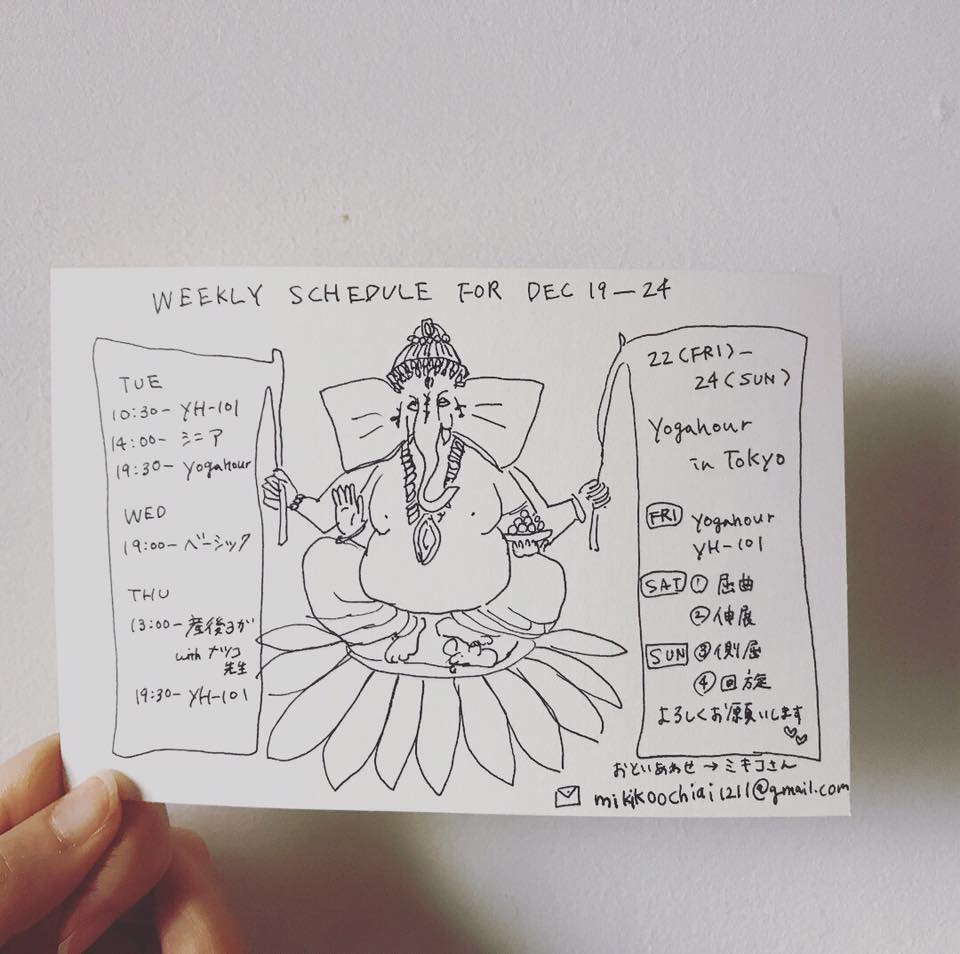 WEEKLY SCHEDULE FOR DEC 19-24
TUE
10:30- YH-101
14:00- シニア
19:30- yogahour
WED
19:00- ベーシック
THU
13:00- 産後ヨガ
with ナツコ
先生
19:30- YH-101
22(FRI)-
24(SUN)
Yogahour
in Tokyo
FRI yogahour
YH-101
SAT ① 屈曲
② 伸展
SUN ③ 側屈
④ 回旋
よろしくお願いします
おといあわせ → ミキコさん
mikikoochiai1211@gmail.com